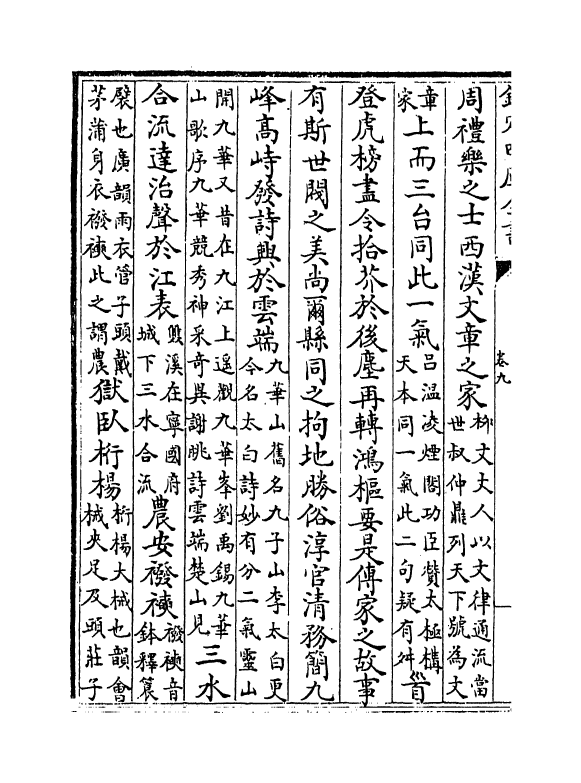 欽定四庫全書
卷九
周禮樂之士西漢文章之家柳文丈人以文律通流當
世叔仲鼎列天下號為文
章
家
上而三台同此一氣呂温凌煙閣功臣贊太極構
天本同一氣此二句疑有舛
首
登虎榜盡令拾芥於後塵再轉鴻樞要是傳家之故事
有斯世閥之美尚爾縣同之拘地勝俗淳官清務簡九
峰髙峙發詩興於雲端九華山舊名九子山李太白更
今名太白詩妙有分二氣靈山
開九華又昔在九江上遥觀九華峯劉禹錫九華
山歌序九華競秀神采奇異謝眺詩雲端楚山見
三水
合流達治聲於江表
溪在寧國府
城下三水合流
農安襏襫襏襫音
鉢釋簑
襞也廣韻雨衣管子頭戴
茅蒲身衣襏襫此之謂農
獄臥桁楊桁楊大械也韻會
械夾足及頭莊子